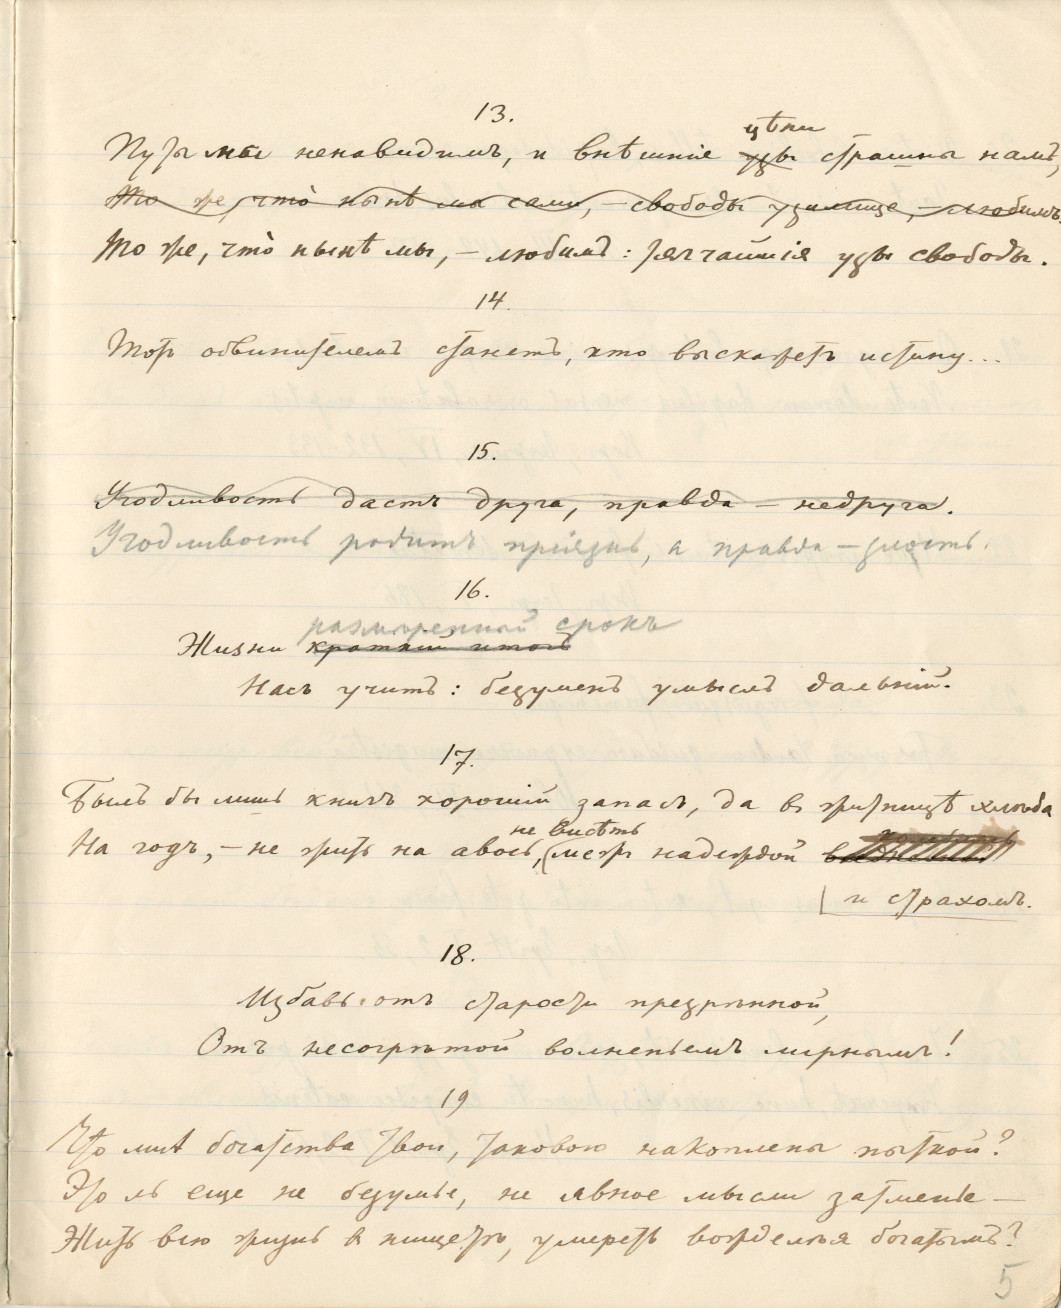 13.
цѣпи
Путы мы ненавидимъ, и внѣшнiе узы страшны намъ,
То же, что̀ нынѣ мы сами, – свободы узилище, – любимъ.
То же, что̀ нынѣ мы, – любимъ: тягчайшiя узы свободы.
14.
Тотъ обвинителемъ станетъ, кто выскажетъ истину...
15.
Угодливость дастъ друга, правда – недруга.
Угодливость родитъ прiязнь, а правда – злость.
16.
размѣренный срокъ
Жизни краткiй итогъ
Насъ учитъ: безуменъ умыслъ дальнiй.
17.
Былъ бы лишь книгъ хорошiй запасъ, да въ житницѣ хлѣба
не висѣть
На годъ, – не жить на авось, межъ надеждой
и страхомъ.
18.
Избавь отъ старости презрѣнной,
Отъ несогрѣтой волненьемъ лирнымъ!
19
Что мнѣ богатства твои, таковою накоплены пыткой?
Это ль еще не безумье, не явное мысли затменье –
Жить всю жизнь въ нищетѣ, умереть вожделѣя богатымъ?
5